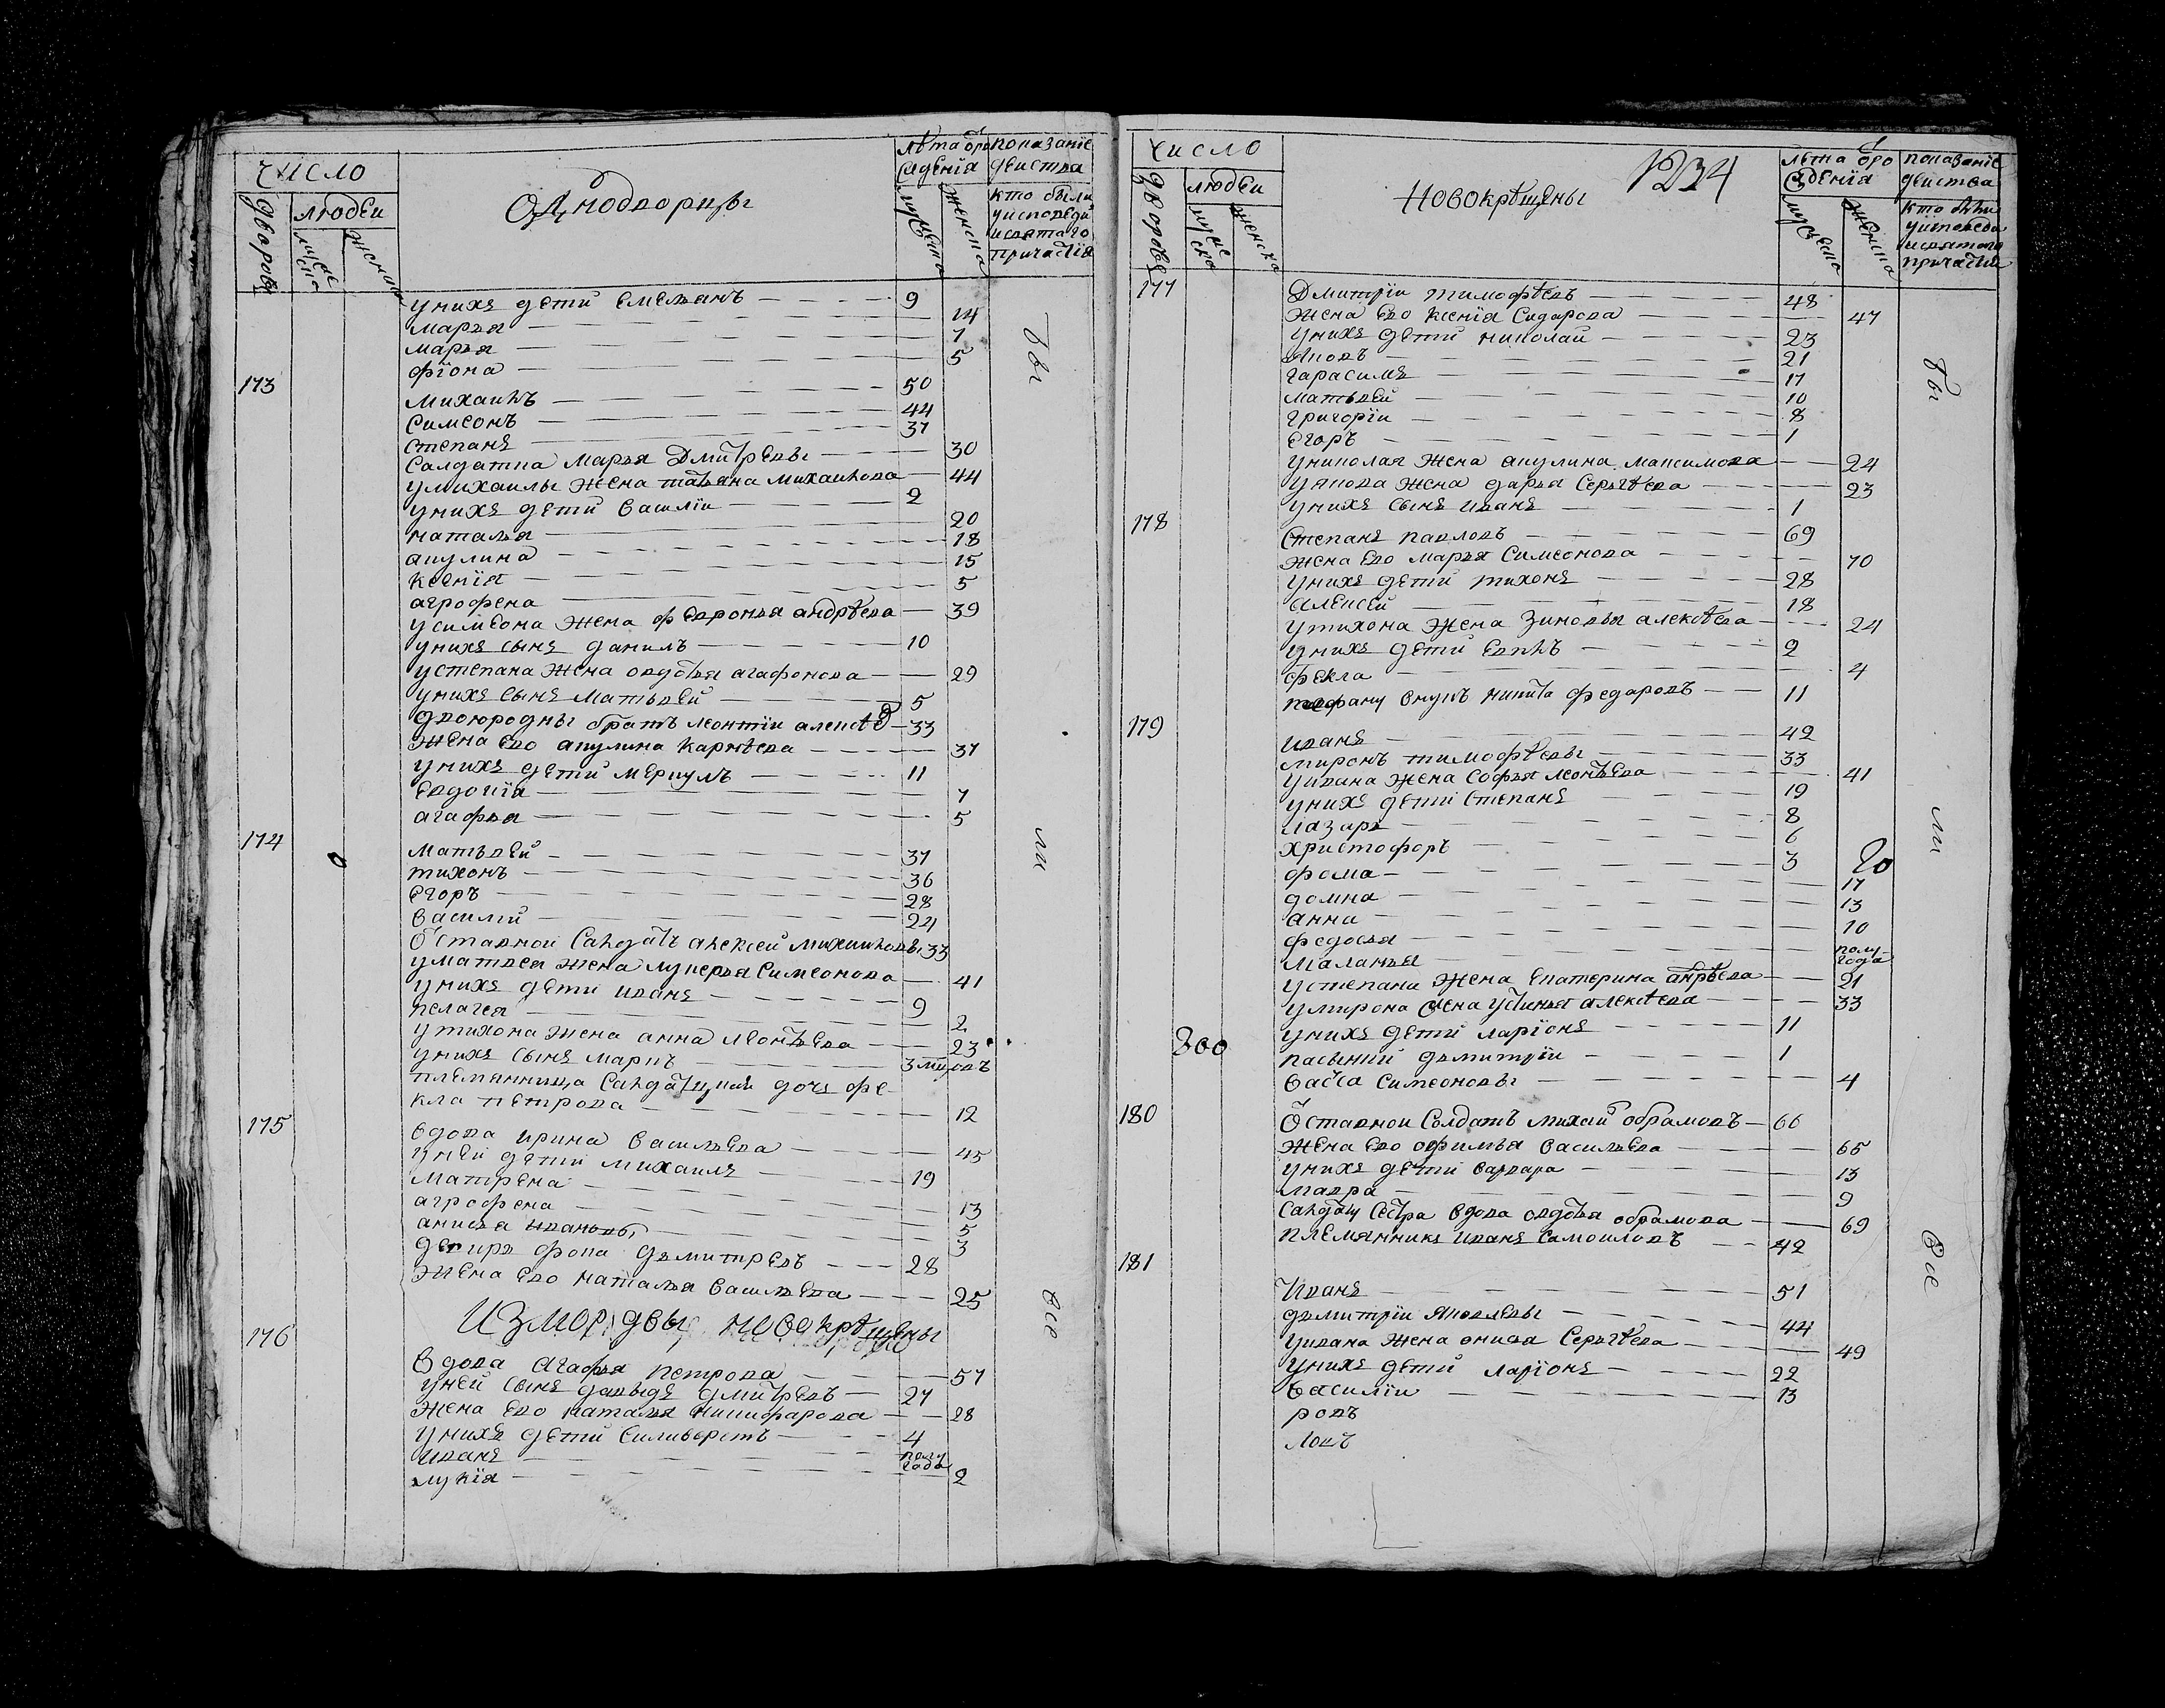 число
дворовъ
людеи
мужеска
женска
однодворцы
лѣта от рождения
мужеска
женска
показанїе действа
кто были у исповеди и святаго причастїя
у нихъ дети емельянъ 9
марья 14
марья 7
фїона 5
173
михаилъ 50
симеонъ 44
степанъ 37
салдатка марья дмитревы 30
у михаилы жена татьяна михаилова 44
у нихъ дети василїи 2
наталья 20
акулина 18
ксенїя 15
агрофена 5
у симеона жена февронья андрѣева 39
у нихъ сынъ данилъ 10
у степана жена овдотья агафонова 29
у нихъ сынъ матьвей 5
двоюродны братъ леонтїи алексѣев 33
жена ево акулина карнѣева 37
у нихъ дети меркулъ 11
евдокїя 7
агафья 5
174
матьвей 37
тихонъ 36
егоръ 28
василий 24
отставнои салдатъ алексей михаиловы 33
у матвея жена лукерья симеонова 41
у нихъ дети иванъ 9
пелагея 2
у тихона жена анна леонтьева 23
у нихъ сынъ маркъ 3
племянница салдатцкая дочь фе-
кла петрова 12
175
вдова ирина васильева 45
у ней дети михаилъ 19
матрена 13
агрофена 5
анисья ивановы 3
фока дьмитревъ 28
жена ево наталья васильева 25
из морьдвы новокрѣщены
176
вдова агафья петрова 57
у ней сынъ давыдъ дмитревъ 27
жена ево наталья никифарова 28
у нихъ дети силиверстъ 4
иванъ полу года
лукїя 2
бы
ли
все
число
дворовъ
людеи
мужеска
женска
новокрѣщены
1234
лѣта от рождения
мужеска
женска
показанїе действа
кто были у исповеди и святаго причастия
177
дмитрїи тимофѣевъ 48
жена ево ксенїя сидарова 47
у нихъ дети николай 23
яковъ 21
гарасимъ 17
матьвей 10
григорїи 8
егоръ 1
у николая жена акулина максимова 24
у якова жена дарья сергѣева 23
у нихъ сынъ иванъ 1
178
степанъ павловъ 69
жена ево марья симеонова 70
у нихъ дети тихонъ 28
алексей 18
у тихона жена зиновья алексѣева 24
у нихъ дети 2
фекла 4
внукъ никита федаровъ 11
179
иванъ 42
миронъ тимофѣевы 33
у ивана жена софья леонтьева 41
у нихъ дети степанъ 19
лазарь 8
христофоръ 6
фома 3
20
домна 17
анна 13
федосья 10
маланья полу года
у степана жена екатерина анрѣева 21
у мирона жена устинья алексѣева 33
у нихъ дети ларїонъ 11
пасынки дьмитрїи 1
васса симеоновы 4
180
отставнои солдатъ михаи обрамовъ 66
жена ево офимья васильева 65
у нихъ дети варвара 13
мавра 9
салдату сестра вдова овдотья обрамова 69
племянникъ иванъ самоиловъ 42
181
иванъ 51
дьмитрїи яковлевы 44
у ивана жена онисья сергѣева 49
у нихъ дети ларїонъ 22
василїи 13
ровъ
ловъ
бы
ли
все